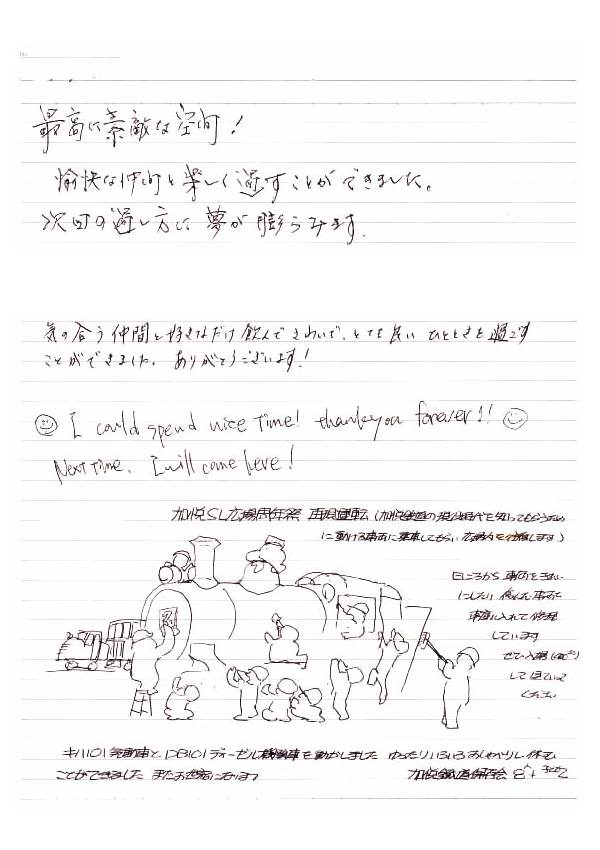 最高に素敵な空間！
愉快な仲間と楽しく過すことができました。
次回の過し方に夢が膨らみます.
気の合う仲間と好きなだけ飲んでさわいで、とても良いひとときを過ごす
ことができました。ありがとうございます！
I could spend nice time! thankyou forever!!
Next time, I will come here!
加悦SL広場周年祭 再現運転(加悦鉄道の現役時代を知ってもらうため
に動ける車両に乗車してもらい広場内を往復します)
日ごろから車両をきれい
にしたり 傷んだ車両を
車庫に入れて修理
しています
ぜひ入場
して見ていって
ください
キハ101気動車とDB101ディーゼル機関車を動かしました ゆったりいろいろおしゃべりし休む
ことができました またお世話になります
加悦鐵道保存会